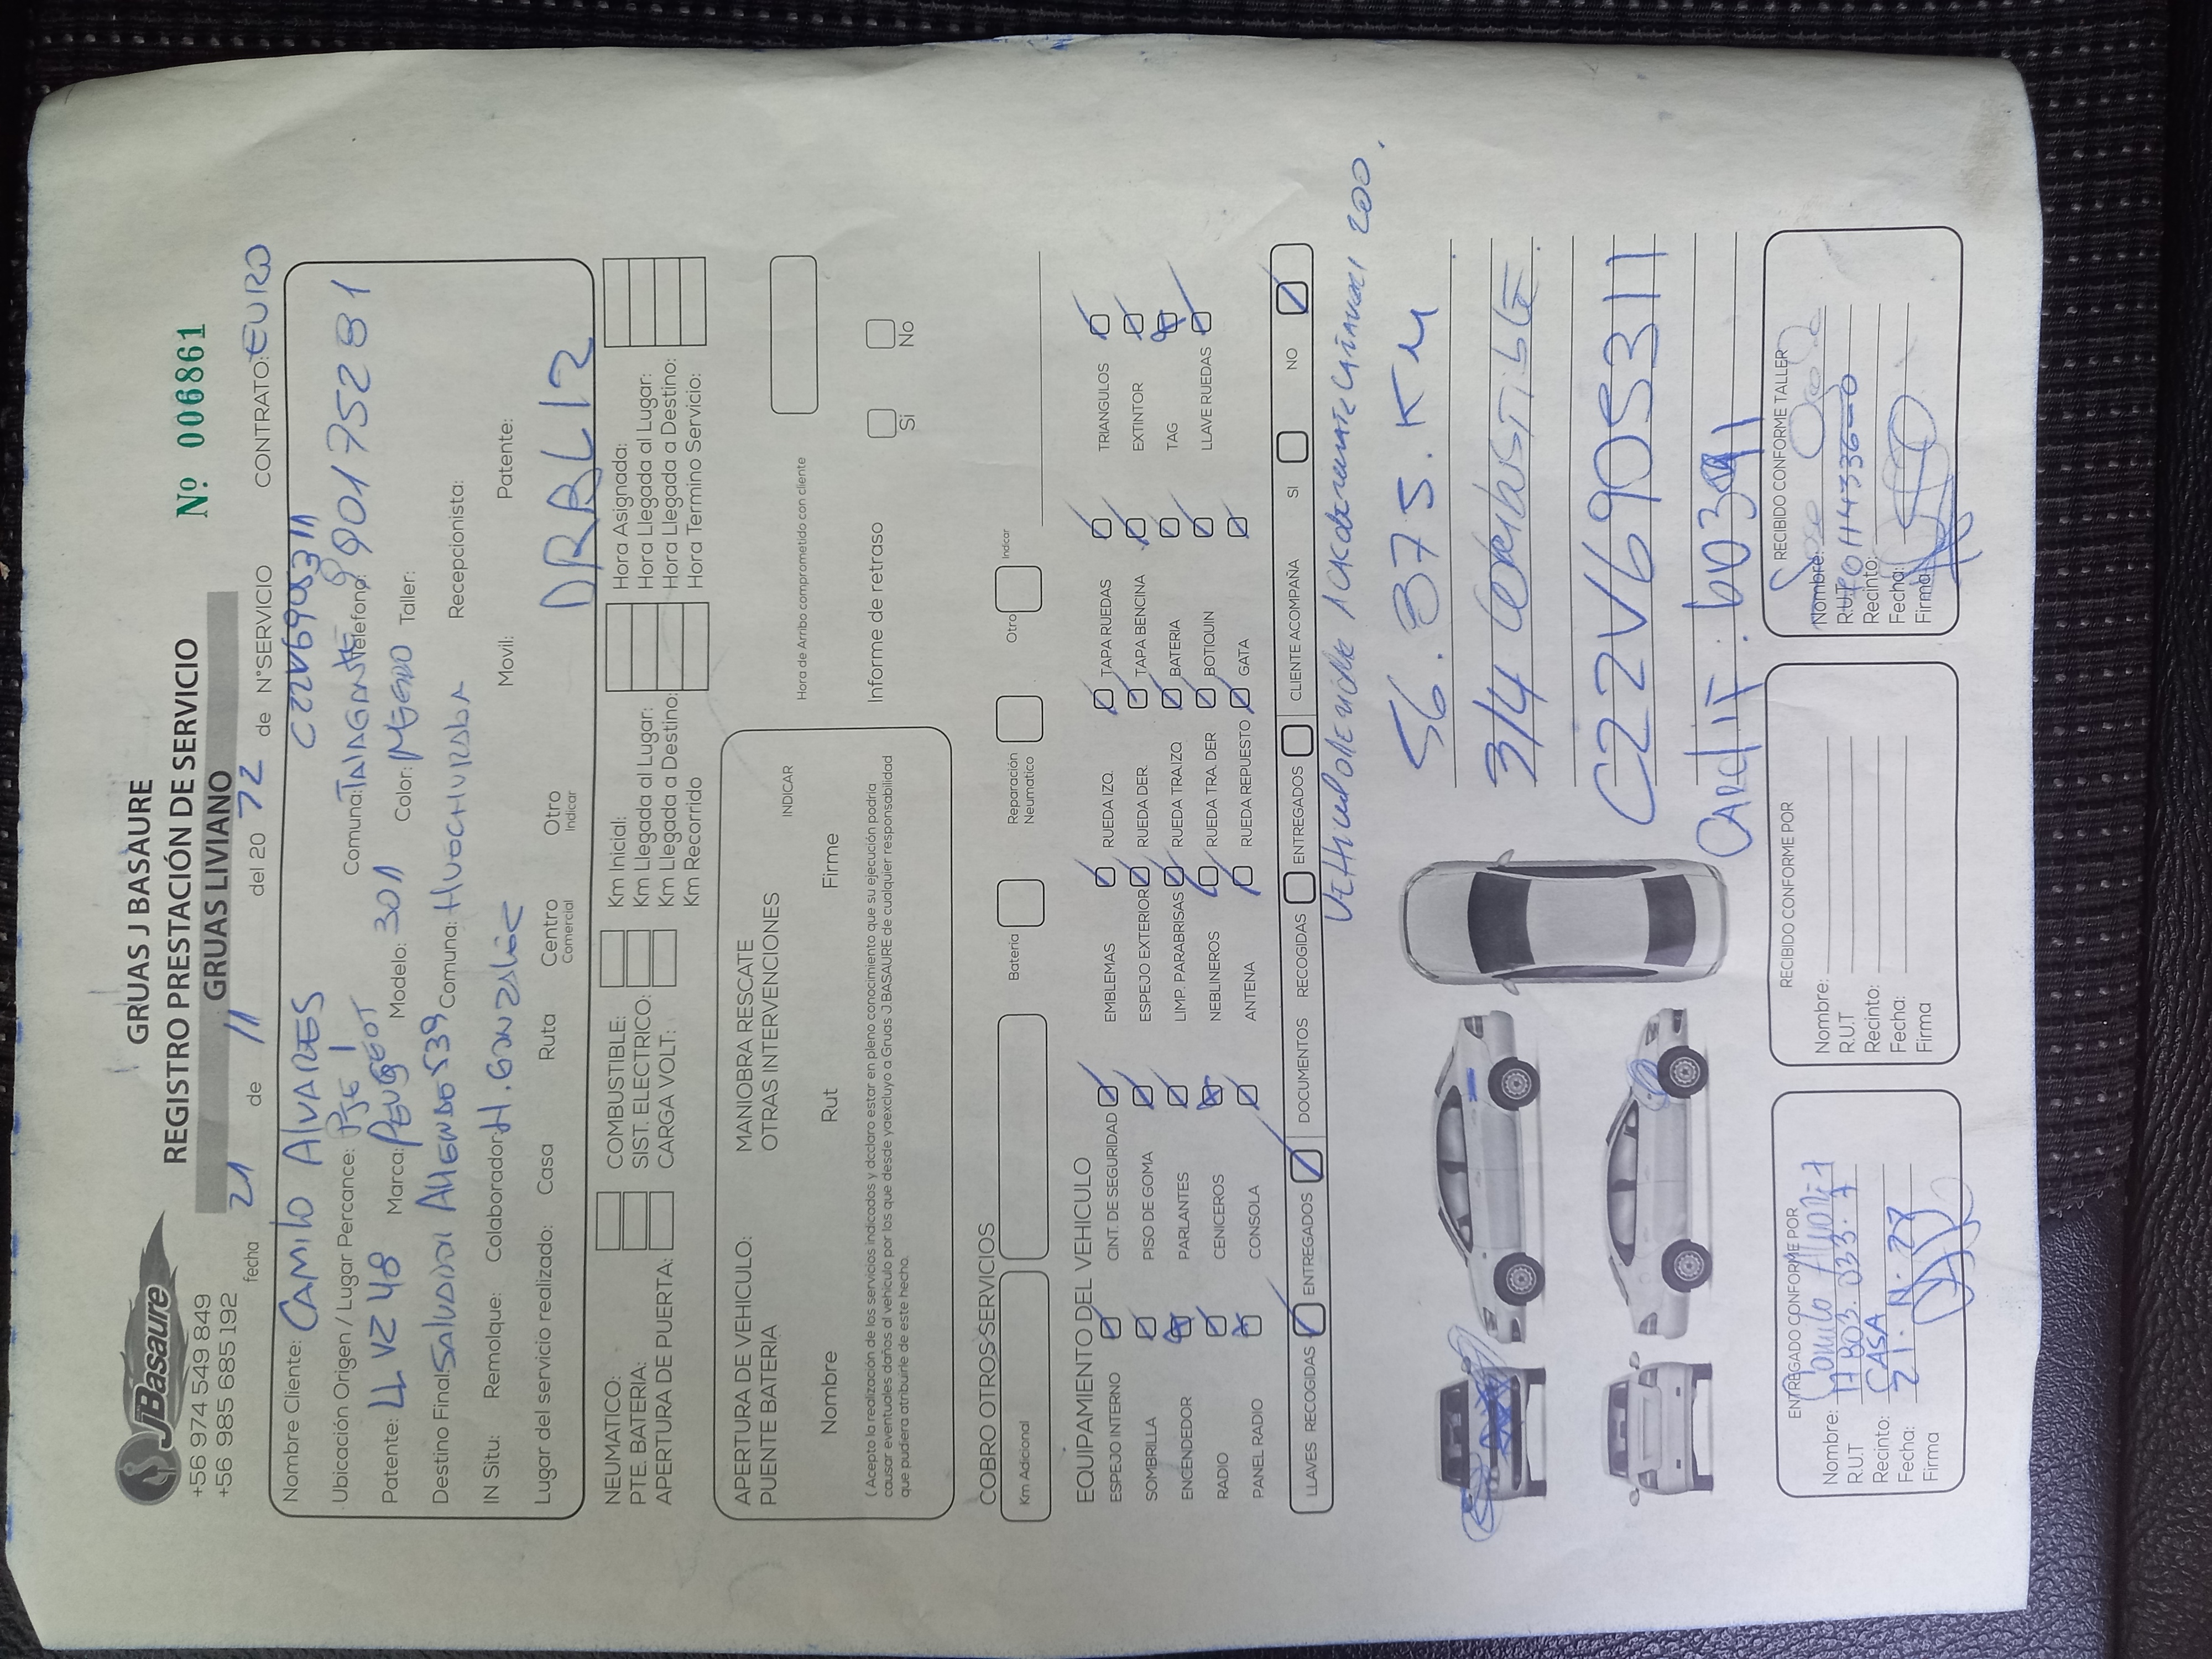 jBasaure
+56 974 549 849
+56 985 685 192
GRUAS J BASAURE
REGISTRO PRESTACIÓN DE SERVICIO
GRUAS LIVIANO
Nº 006861
fecha 21 de 11 del 20 22 de N°SERVICIO CONTRATO: EURO
C22V690311
Nombre Cliente: CAMILO ALVARES
Ubicación Origen / Lugar Percance: PJE 1 Comuna: TALAGANTE Telefono: 9 90175281
Patente: LLVZ48 Marca: PEUGEOT Modelo: 301 Color: NEGRO Taller:
Destino Final: SALVADOR ALLENDE 539 Comuna: HUECHURABA Recepcionista:
IN Situ: Remolque: Colaborador: H. GONZALEZ Movil: Patente:
Lugar del servicio realizado: Casa Ruta Centro Comercial Otro Indicar DRBL12
NEUMATICO: COMBUSTIBLE: Km Inicial: Hora Asignada:
PTE. BATERIA: SIST. ELECTRICO: Km Llegada al Lugar: Hora Llegada al Lugar:
APERTURA DE PUERTA: CARGA VOLT.: Km Llegada a Destino: Hora Llegada a Destino:
Km Recorrido Hora Termino Servicio:
APERTURA DE VEHICULO: MANIOBRA RESCATE INDICAR
PUENTE BATERIA OTRAS INTERVENCIONES
Hora de Arribo comprometido con cliente
Nombre Rut Firme
Informe de retraso Si No
( Acepto la realización de los servicios indicados y declaro estar en pleno conocimiento que su ejecución podria
causar eventuales daños al vehiculo por los que desde yaexcluyo a Gruas J.BASAURE de cualquier responsabilidad
que pudiera atribuirle de este hecho.
COBRO OTROS SERVICIOS
Km Adicional Bateria Reparación Neumatico Otro Indicar
EQUIPAMIENTO DEL VEHICULO
ESPEJO INTERNO CINT. DE SEGURIDAD EMBLEMAS RUEDA IZQ. TAPA RUEDAS TRIANGULOS
SOMBRILLA PISO DE GOMA ESPEJO EXTERIOR RUEDA DER. TAPA BENCINA EXTINTOR
ENCENDEDOR PARLANTES LIMP. PARABRISAS RUEDA TRA IZQ. BATERIA TAG
RADIO CENICEROS NEBLINEROS RUEDA TRA. DER BOTIQUIN LLAVE RUEDAS
PANEL RADIO CONSOLA ANTENA RUEDA REPUESTO GATA
LLAVES RECOGIDAS ENTREGADOS DOCUMENTOS RECOGIDAS ENTREGADOS CLIENTE ACOMPAÑA SI NO
56.875.KM
3/4 COMBUSTIBLE
C22V690311
ENTREGADO CONFORME POR
Nombre: Camilo
R.U.T
Recinto: CASA
Fecha:
Firma
RECIBIDO CONFORME POR
Nombre:
R.U.T
Recinto:
Fecha:
Firma
RECIBIDO CONFORME TALLER
Nombre:
R.U.T
Recinto:
Fecha:
Firma